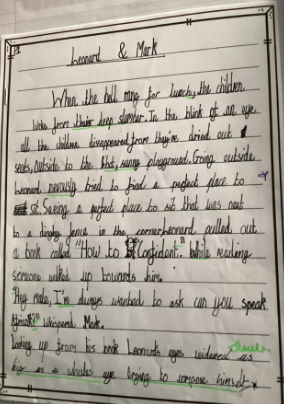 Leonard & Mark
When the bell rang for lunch, the children
woke from their deep slumber. In the blink of an eye
all the children disappeared from they're dried out
seats, outside to the hot, sunny playground. Going outside
Leonard nervously tried to find a perfect place to
sit. Seeing a perfect place to sit that was next
to a dingy fence in the corner leonard pulled out
a book called "How to be Confident". While reading
someone walked up towards him.
"Hey mate, I've always wanted to ask can you speak
whispered Mark.
Looking up from his book Leonards eyes widened as
big as a whales eye trying to compose himself.